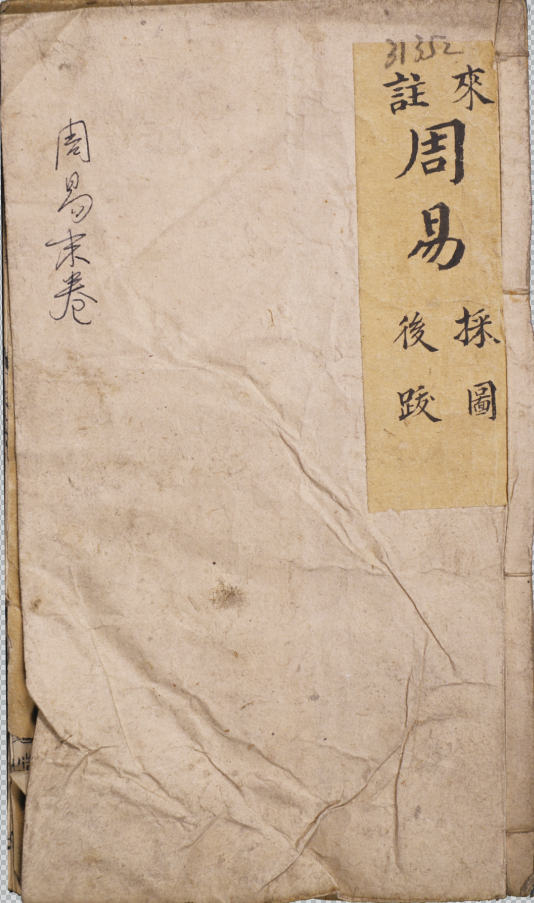 31352
來註
周易
採圖
後跋
周易末卷